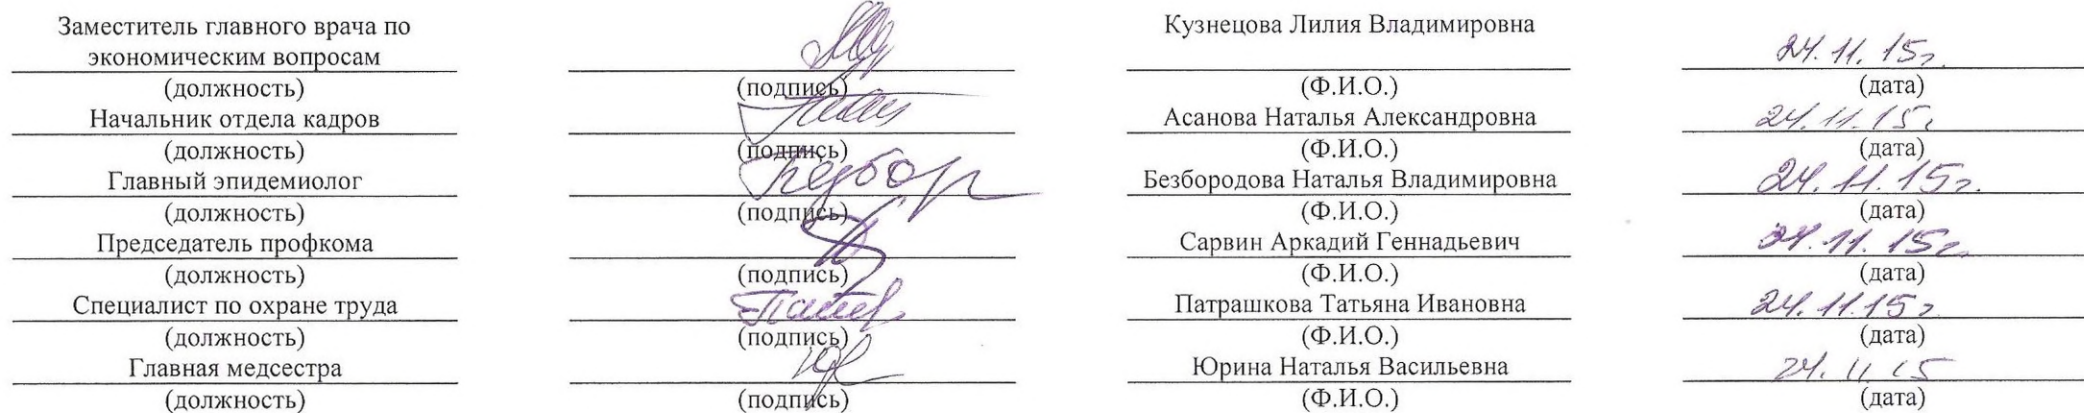 Заместитель главного врача по
экономическим вопросам Кузнецова Лилия Владимировна 24.11.15г.
(должность) (подпись) (Ф.И.О.) (дата)
Начальник отдела кадров Асанова Наталья Александровна 24.11.15г
(должность) (подпись) (Ф.И.О.) (дата)
Главный эпидемиолог Безбородова Наталья Владимировна 24.11.15г.
(должность) (подпись) (Ф.И.О.) (дата)
Председатель профкома Сарвин Аркадий Геннадьевич 24.11.15г
(должность) (подпись) (Ф.И.О.) (дата)
Специалист по охране труда Патрашкова Татьяна Ивановна 24.11.15г
(должность) (подпись) (Ф.И.О.) (дата)
Главная медсестра Юрина Наталья Васильевна 24.11 15
(должность) (подпись) (Ф.И.О.) (дата)